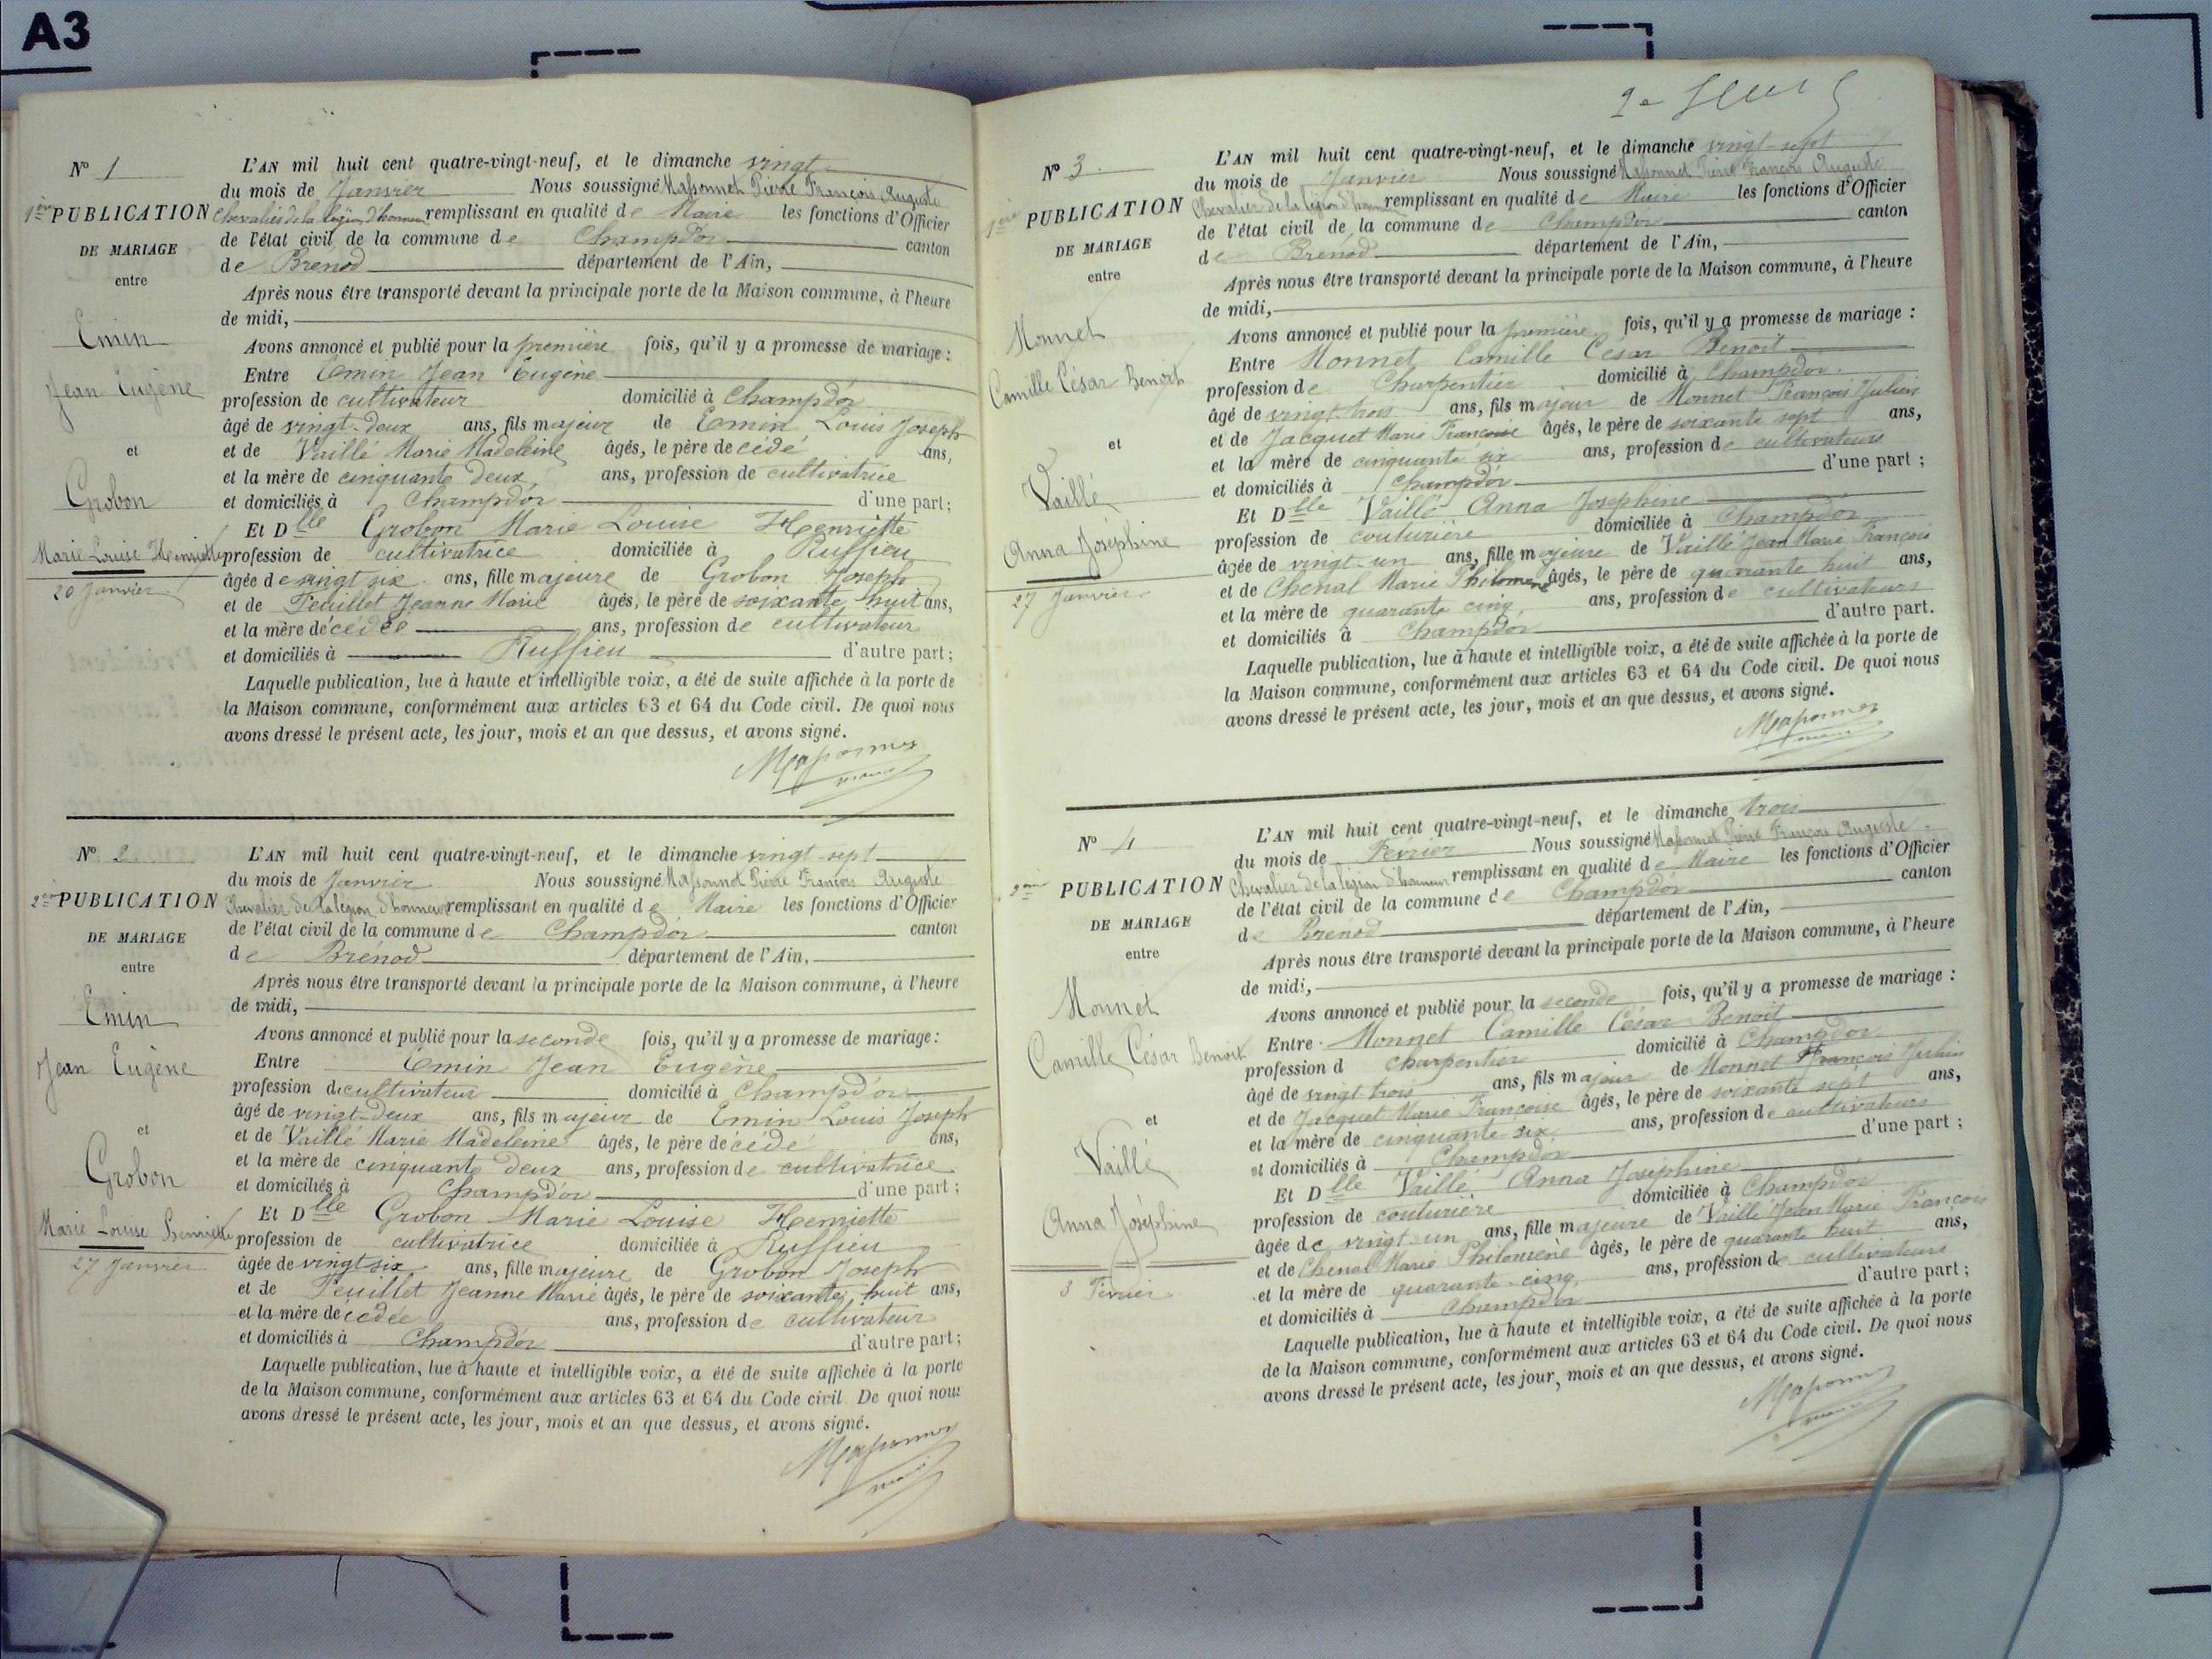 A3
N° 1
1ère PUBLICATION
DE MARIAGE
entre
Emin
Jean Eugène
et
Grobon
Marie Louise Henriette
20 Janvier
L'AN mil huit cent quatre-vingt-neuf, et le dimanche vingt
du mois de Janvier Nous soussigné Massonnet Pierre François Auguste
Chevalier de la légion d'honneur remplissant en qualité de Maire les fonctions d'Officier
de l'état civil de la commune de Champdor canton
de Brenod département de l'Ain,
Après nous être transporté devant la principale porte de la Maison commune, à l'heure
de midi,
Avons annoncé et publié pour la première fois, qu'il y a promesse de mariage :
Entre Emin Jean Eugène
profession de cultivateur domicilié à Champdor
âgé de vingt-deux ans, fils majeur de Emin Louis Joseph
et de Vaillé Marie Madeleine âgés, le père decédé ans,
et la mère de cinquante deux ans, profession de cultivatrice
et domiciliés à Champdor d'une part;
Et Dlle Grobon Marie Louise Henriette
profession de cultivatrice domiciliée à Ruffieu
âgée de vingt six ans, fille majeure de Grobon Joseph
et de Feuillet Jeanne Marie âgés, le père de soixante huit ans,
et la mère décédée ans, profession de cultivateur
et domiciliés à Ruffieu d'autre part;
Laquelle publication, lue à haute et intelligible voix, a été de suite affichée à la porte de
la Maison commune, conformément aux articles 63 et 64 du Code civil. De quoi nous
avons dressé le présent acte, les jour, mois et an que dessus, et avons signé.
Massonnet
maire
N° 2
2ème PUBLICATION
DE MARIAGE
entre
Emin
Jean Eugène
et
Grobon
Marie Louise Henriette
27 Janvier
L'AN mil huit cent quatre-vingt-neuf, et le dimanche vingt sept
du mois de Janvier Nous soussigné Massonnet Pierre François Auguste
Chevalier de la légion d'honneur remplissant en qualité de Maire les fonctions d'Officier
de l'état civil de la commune de Champdor canton
de Brénod département de l'Ain,
Après nous être transporté devant la principale porte de la Maison commune, à l'heure
de midi,
Avons annoncé et publié pour la seconde fois, qu'il y a promesse de mariage:
Entre Emin Jean Eugène
profession de cultivateur domicilié à Champdor
âgé de vingt-deux ans, fils majeur de Emin Louis Joseph
et de Vaillé Marie Madeleine âgés, le père decédé ans,
et la mère de cinquante deux ans, profession de cultivatrice
et domiciliés à Champdor d'une part;
Et Dlle Grobon Marie Louise Henriette
profession de cultivatrice domiciliée à Ruffieu
âgée de vingt six ans, fille majeure de Grobon Joseph
et de Feuillet Jeanne Marie âgés, le père de soixante huit ans,
et la mère decédée ans, profession de cultivateur
et domiciliés à Champdor d'autre part;
Laquelle publication, lue à haute et intelligible voix, a été de suite affichée à la porte
de la Maison commune, conformément aux articles 63 et 64 du Code civil. De quoi nous
avons dressé le présent acte, les jour, mois et an que dessus, et avons signé.
Massonnet
maire
N° 3
1ère PUBLICATION
DE MARIAGE
entre
Monnet
Camille César Benoit
et
Vaillé
Anna Joséphine
27 Janvier
L'AN mil huit cent quatre-vingt-neuf, et le dimanche vingt-sept
du mois de Janvier Nous soussigné Massonnet Pierre François Auguste
Chevalier de la légion d'honneur remplissant en qualité de Maire les fonctions d'Officier
de l'état civil de la commune de Champdor canton
de Brénod département de l'Ain,
Après nous être transporté devant la principale porte de la Maison commune, à l'heure
de midi,
Avons annoncé et publié pour la première fois, qu'il y a promesse de mariage :
Entre Monnet Camille César Benoit
profession de Charpentier domicilié à Champdor
âgé de vingt-trois ans, fils majeur de Monnet François Julien
et de Jacquet Marie Françoise âgés, le père de soixante sept ans,
et la mère de cinquante six ans, profession de cultivateurs
et domiciliés à Champdor d'une part ;
Et Dlle Vaillé Anna Josephine
profession de couturière domiciliée à Champdor
âgée de vingt-un ans, fille majeure de Vaillé Jean Marie François
et de Chenal Marie Philomène âgés, le père de quarante huit ans,
et la mère de quarante cinq ans, profession de cultivateurs
et domiciliés à Champdor d'autre part.
Laquelle publication, lue à haute et intelligible voix, a été de suite affichée à la porte de
la Maison commune, conformément aux articles 63 et 64 du Code civil. De quoi nous
avons dressé le présent acte, les jour, mois et an que dessus, et avons signé.
Massonnet
maire
N° 4
2ème PUBLICATION
DE MARIAGE
entre
Monnet
Camille César Benoit
et
Vaillé
Anna Joséphine
3 Février
L'AN mil huit cent quatre-vingt-neuf, et le dimanche trois
du mois de Février Nous soussigné Massonnet Pierre François Auguste
Chevalier de la légion d'honneur remplissant en qualité de Maire les fonctions d'Officier
de l'état civil de la commune de Champdor canton
de Brenod département de l'Ain,
Après nous être transporté devant la principale porte de la Maison commune, à l'heure
de midi,
Avons annoncé et publié pour la seconde fois, qu'il y a promesse de mariage :
Entre Monnet Camille César Benoit
profession d charpentier domicilié à Champdor
âgé de vingt trois ans, fils majeur de Monnet François Julien
et de Jacquet Marie Françoise âgés, le père de soixante sept ans,
et la mère de cinquante six ans, profession de cultivateurs
et domiciliés à Champdor d'une part ;
Et Dlle Vaillé Anna Joséphine
profession de couturière domiciliée à Champdor
âgée de vingt un ans, fille majeure de Vaillé Jean Marie François
et de Chenal Marie Philomène âgés, le père de quarante huit ans,
et la mère de quarante-cinq ans, profession de cultivateurs
et domiciliés à Champdor d'autre part ;
Laquelle publication, lue à haute et intelligible voix, a été de suite affichée à la porte
de la Maison commune, conformément aux articles 63 et 64 du Code civil. De quoi nous
avons dressé le présent acte, les jour, mois et an que dessus, et avons signé.
Massonnet
maire